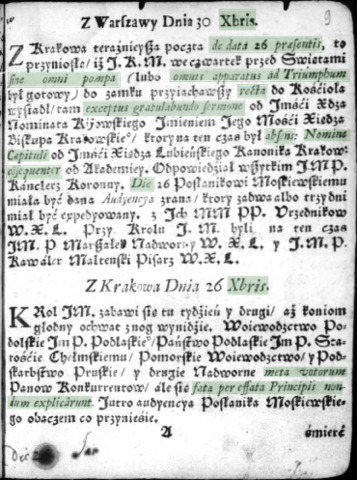 Z Warszawy Dnia 30 Xbris. 9
Z Krakowa teraźnieyßa poczta de data 26 præsentis, to
przyniosłe/ iż J. K. M. we czwartek przed Swietami
sine omni pompa (lubo omnis apparatus ad Triumphum
był gotowy/ do zamku przyiachawßy recta do Kościoła
wysiadł/ tam exceptus gratulabundo sermone od Jmści Xdza
Nominata Kijowskiego Jmieniem Jego Mości Xiedza
Biskupa Krakowskie°/ ktory na ten czas był absens: Nomine
Capituli od Jmści Xiedza Lubieńskiego Kanonika Krakow:
consequenter od Akademiey. Odpowiedział wßytkim J. M. P.
Kanclerz Koronny. Die 26 Posłanikowi Moskiewskiemu
miała być dana Audyencya zrana/ ktory zadwa albo trzy dni
miał być expedyowany. z Jch MM PP. Vrzednikow
W. X. L. Przy Krolu J. M. byli na ten czas
JM. P. Marßałek Nadworny W. X. L. y J. M. P.
Kawaler Maltenski Pisarz W. X. L.
Z Krakowa Dnia 26 Xbris.
KRol JM. zabawi sie tu tydzień y drugi/ aż koniom
głodny ochwat z nog wynidzie. Woiewodztwo Po-
dolskie Jm P. Podlaskie°/ Państwo Podlaskie Jm P. Sta-
rośćie Chełmskiemu/ Pomorskie Woiewodztwo/ y Pod-
skarbstwo Pruskie/ y drugie Nadworne meta votorum
Panow Konkurrentow/ ale sie fata per effata Principis non-
dum explicârunt. Jutro audyencya Posłanika Moskiewskie-
go obaczem co przyniesie.
A śmierć